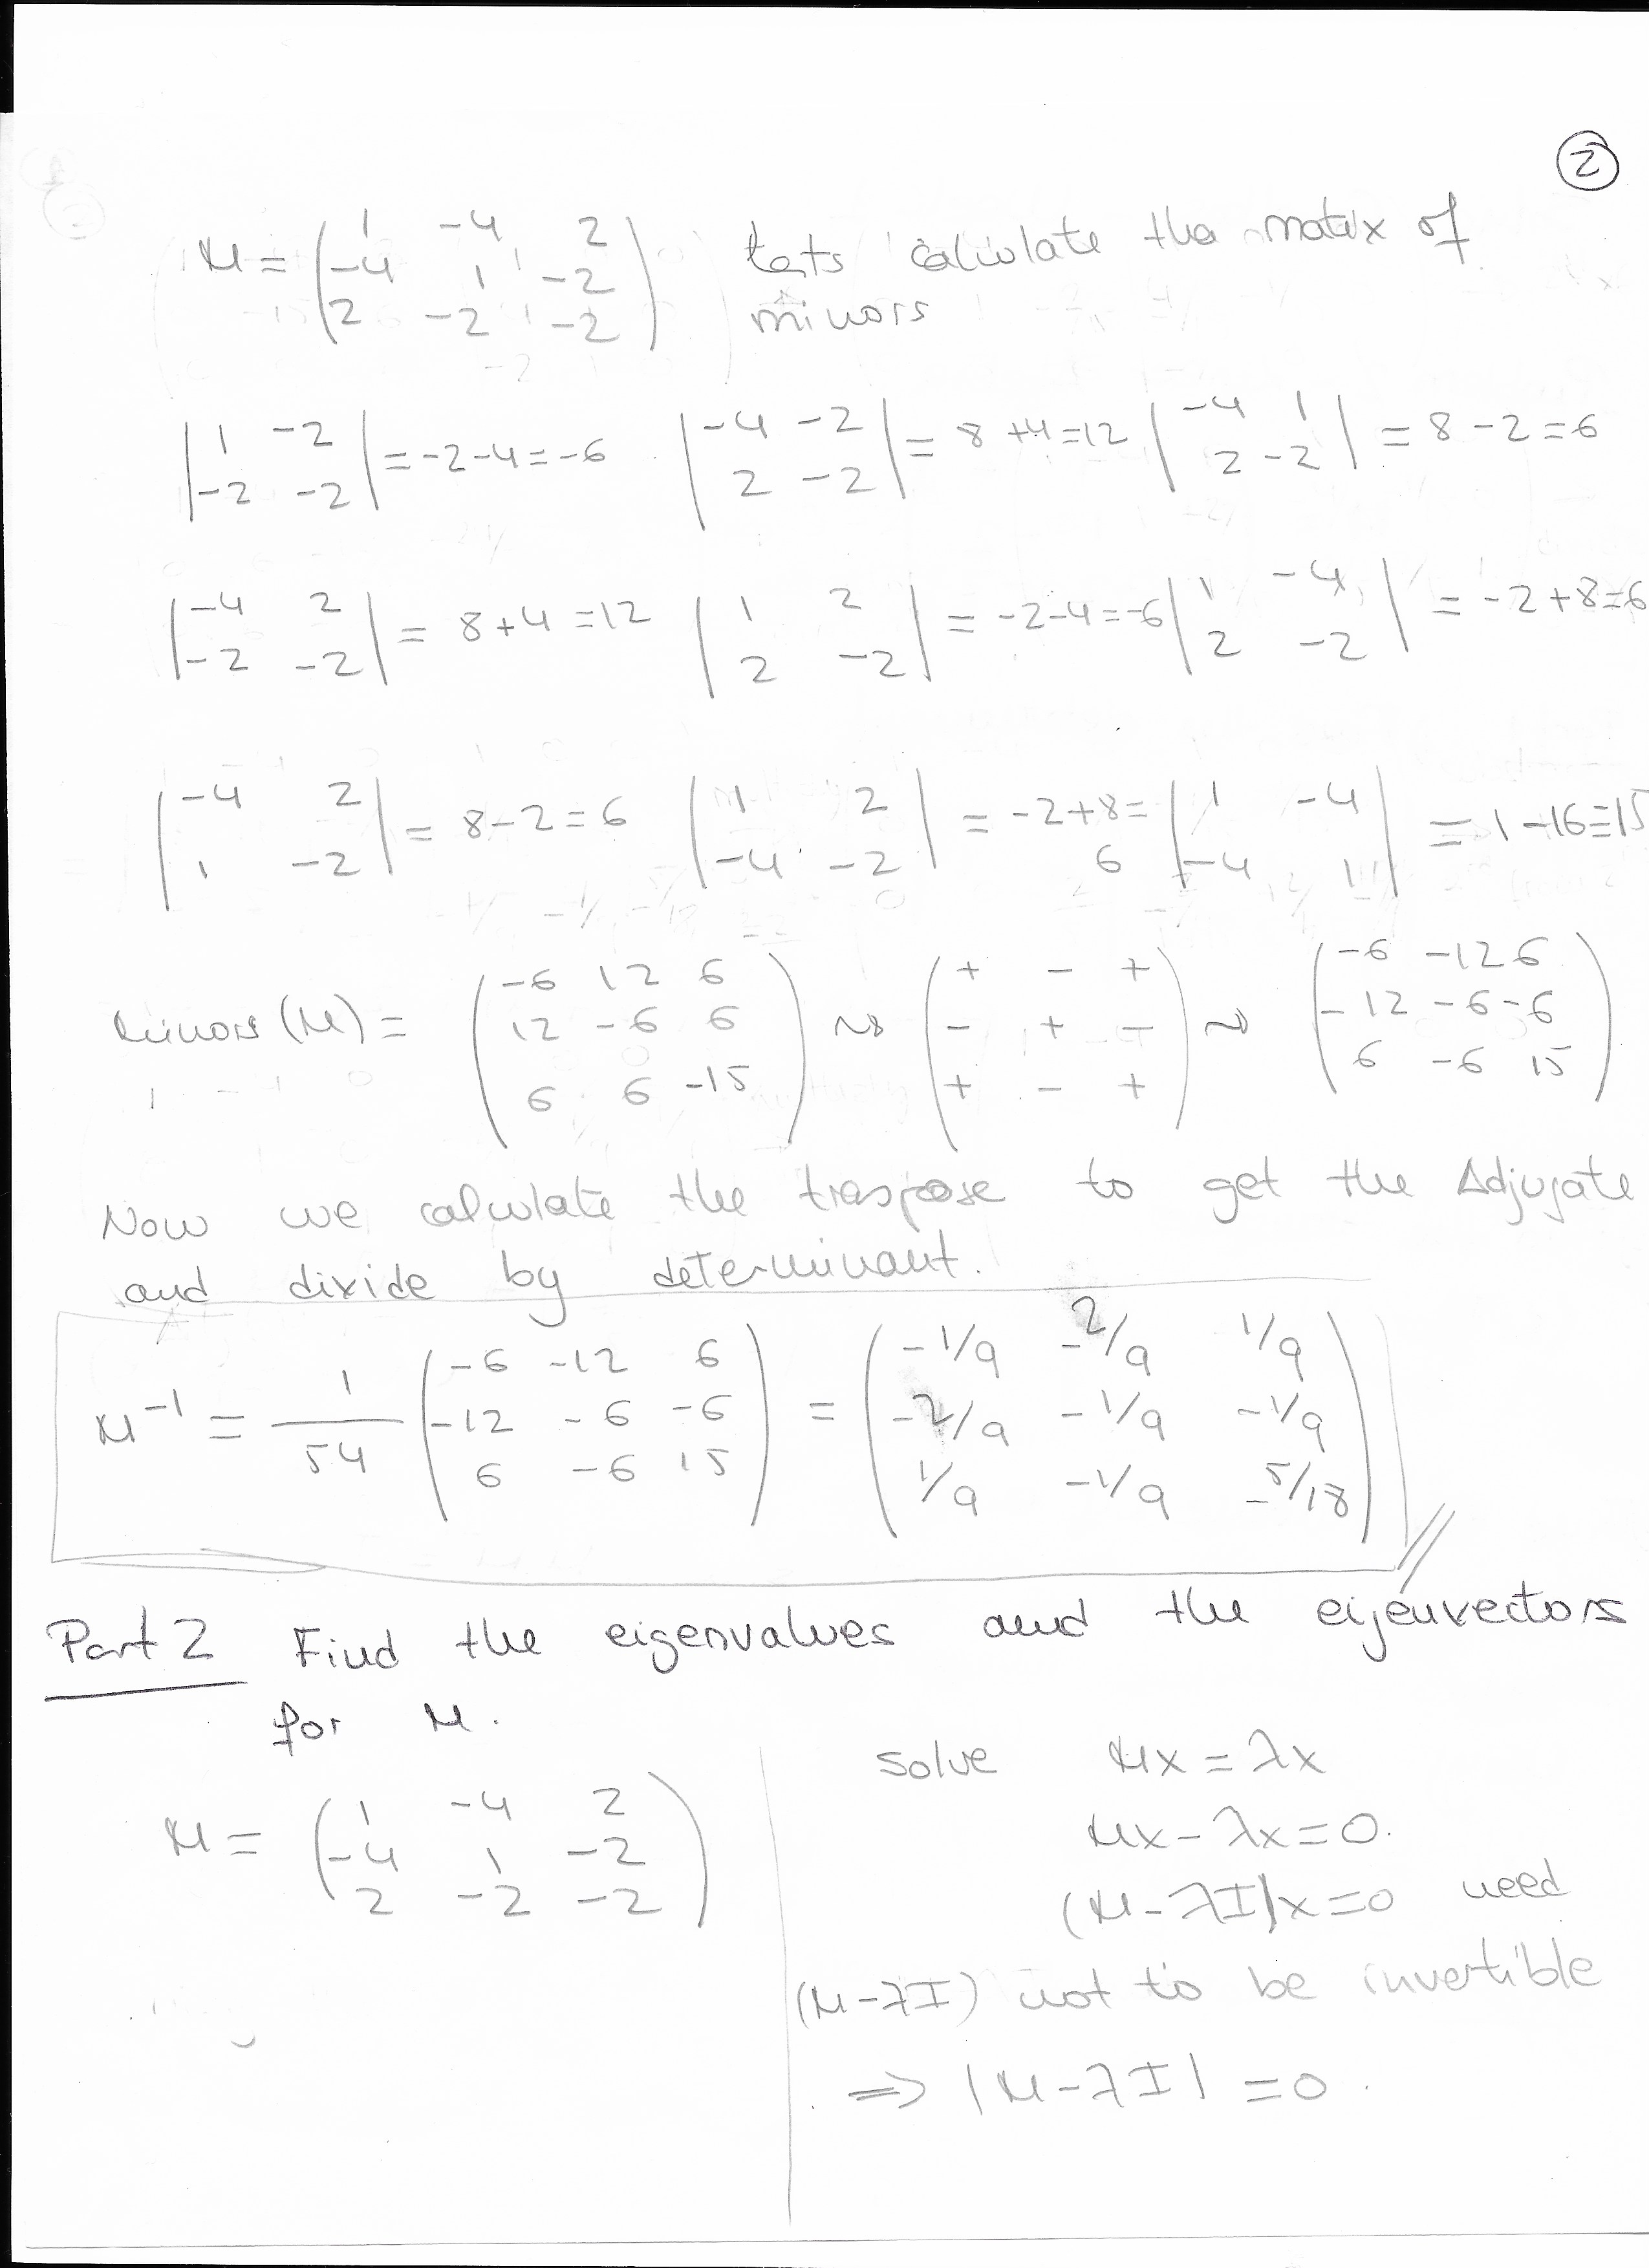 ②
M = ( 1 -4 2 lets calculate the matrix of
-4 1 -2
2 -2 -2 ) minors
| 1 -2 | = -2-4=-6 | -4 -2 | = 8+4=12 | -4 1 | = 8-2=6
| -2 -2 | | 2 -2 | | 2 -2 |
| -4 2 | = 8+4=12 | 1 2 | = -2-4=-6 | 1 -4 | = -2+8=6
| -2 -2 | | 2 -2 | | 2 -2 |
| -4 2 | = 8-2=6 | 1 2 | = -2+8= | 1 -4 | = 1-16=15
| 1 -2 | | -4 -2 | 6 | -4 1 |
Minors (M) = ( -6 12 6 ( + - + ( -6 -12 6
12 -6 6 ~> - + - ~> -12 -6 -6
6 6 -15 ) + - + ) 6 -6 15 )
Now we calculate the traspose to get the Adjugate
and divide by determinant.
M⁻¹ = 1/54 ( -6 -12 6 = ( -1/9 -2/9 1/9
-12 -6 -6 -2/9 -1/9 -1/9
6 -6 15 ) 1/9 -1/9 -5/18 )
Part 2 Find the eigenvalues and the eigenvectors
for M.
M = ( 1 -4 2
-4 1 -2
2 -2 -2 )
solve Mx = λx
Mx - λx = 0.
(M - λI)x = 0 need
(M - λI) not to be invertible
⇒ |M - λI| = 0.